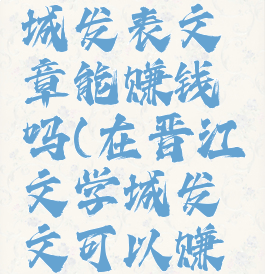 城发表文
章能赚钱
吗(在晋江
文学城发
文可以赚